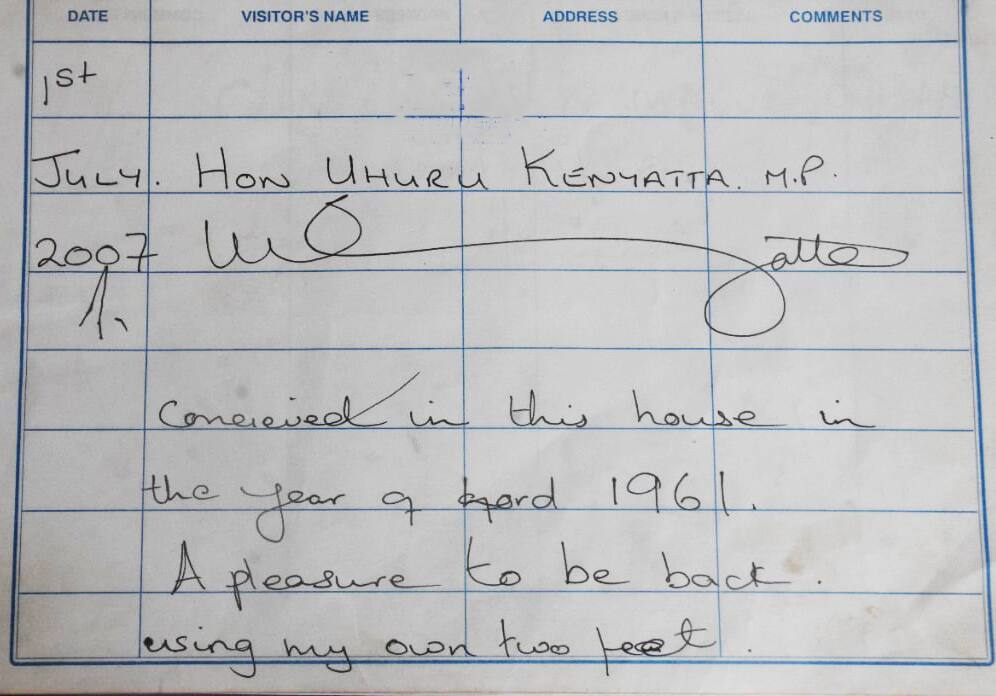 DATE VISITOR'S NAME ADDRESS COMMENTS
1st
JULY. HON UHURU KENYATTA. M.P.
2007
Conceived in this house in
the year of lord 1961.
A pleasure to be back.
using my own two feet.